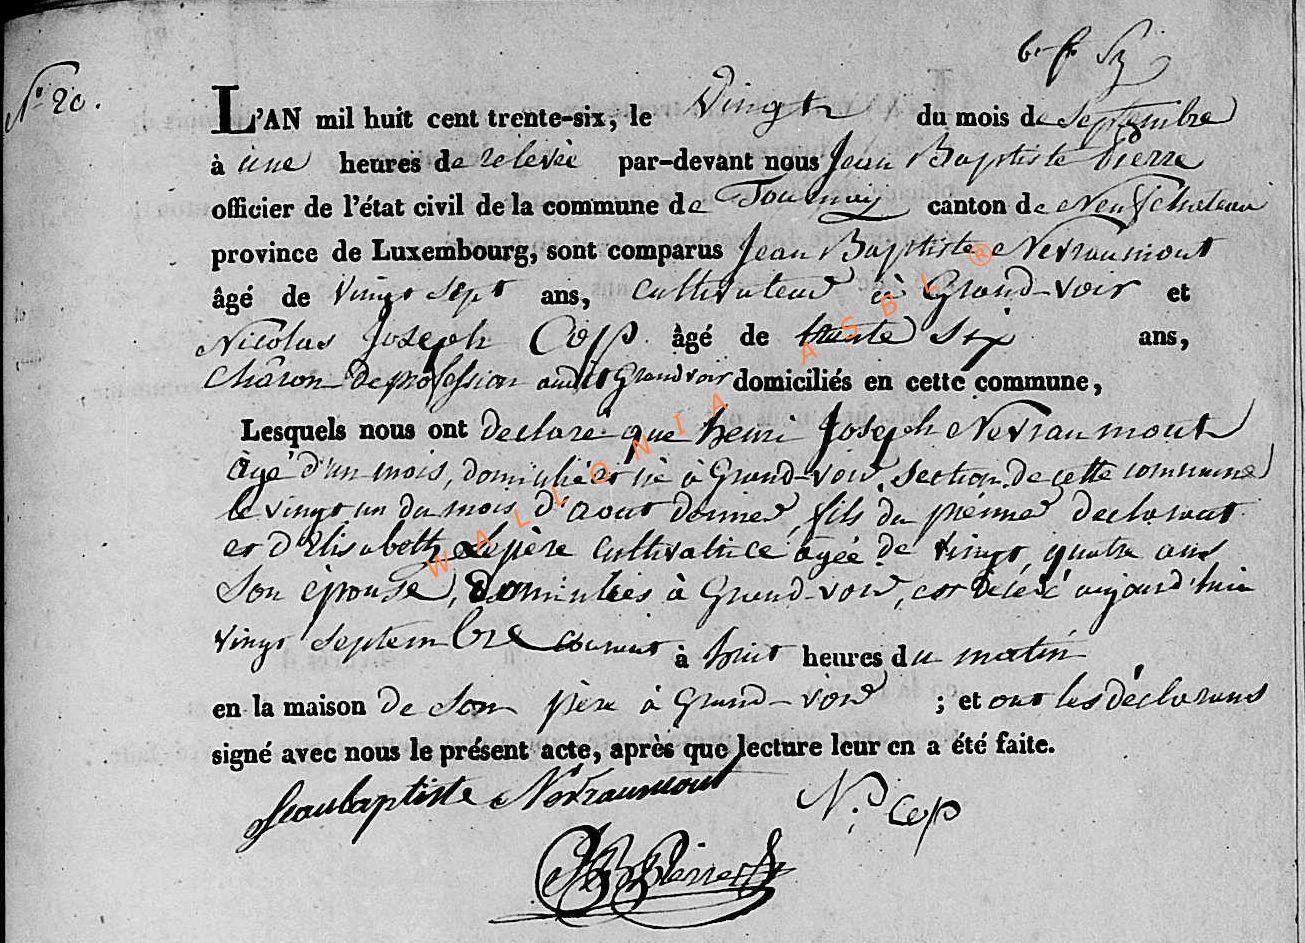 N° 20.
L'AN mil huit cent trente-six, le Vingt du mois de Septembre
à une heures de relevée par-devant nous Jean Baptiste Pierre
officier de l'état civil de la commune de Tournay canton de Neufchateau
province de Luxembourg, sont comparus Jean Baptiste Nevraumont
âgé de vingt sept ans, cultivateur à Grand-voir et
Nicolas Joseph Cop âgé de trente Six ans,
charon de profession audit Grandvoir domiciliés en cette commune,
Lesquels nous ont declaré que henri Joseph Nevraumont
âgé d'un mois, domicilié et né à Grand-voir, section de cette commune
le vingt un du mois d'aout dernier, fils du premier declarant
et d'Elisabeth Lepère cultivatrice âgée de vingt quatre ans
Son épouse, domiciliés à Grand-voir, est décédé aujourd'huis
vingt septembre courant à huit heures du matin
en la maison de son père à Grand-voir ; et ont les déclarans
signé avec nous le présent acte, après que lecture leur en a été faite.
Jeanbaptiste Nevraumont N. Cop
JB Pierre
WALLONIA ASBL ®